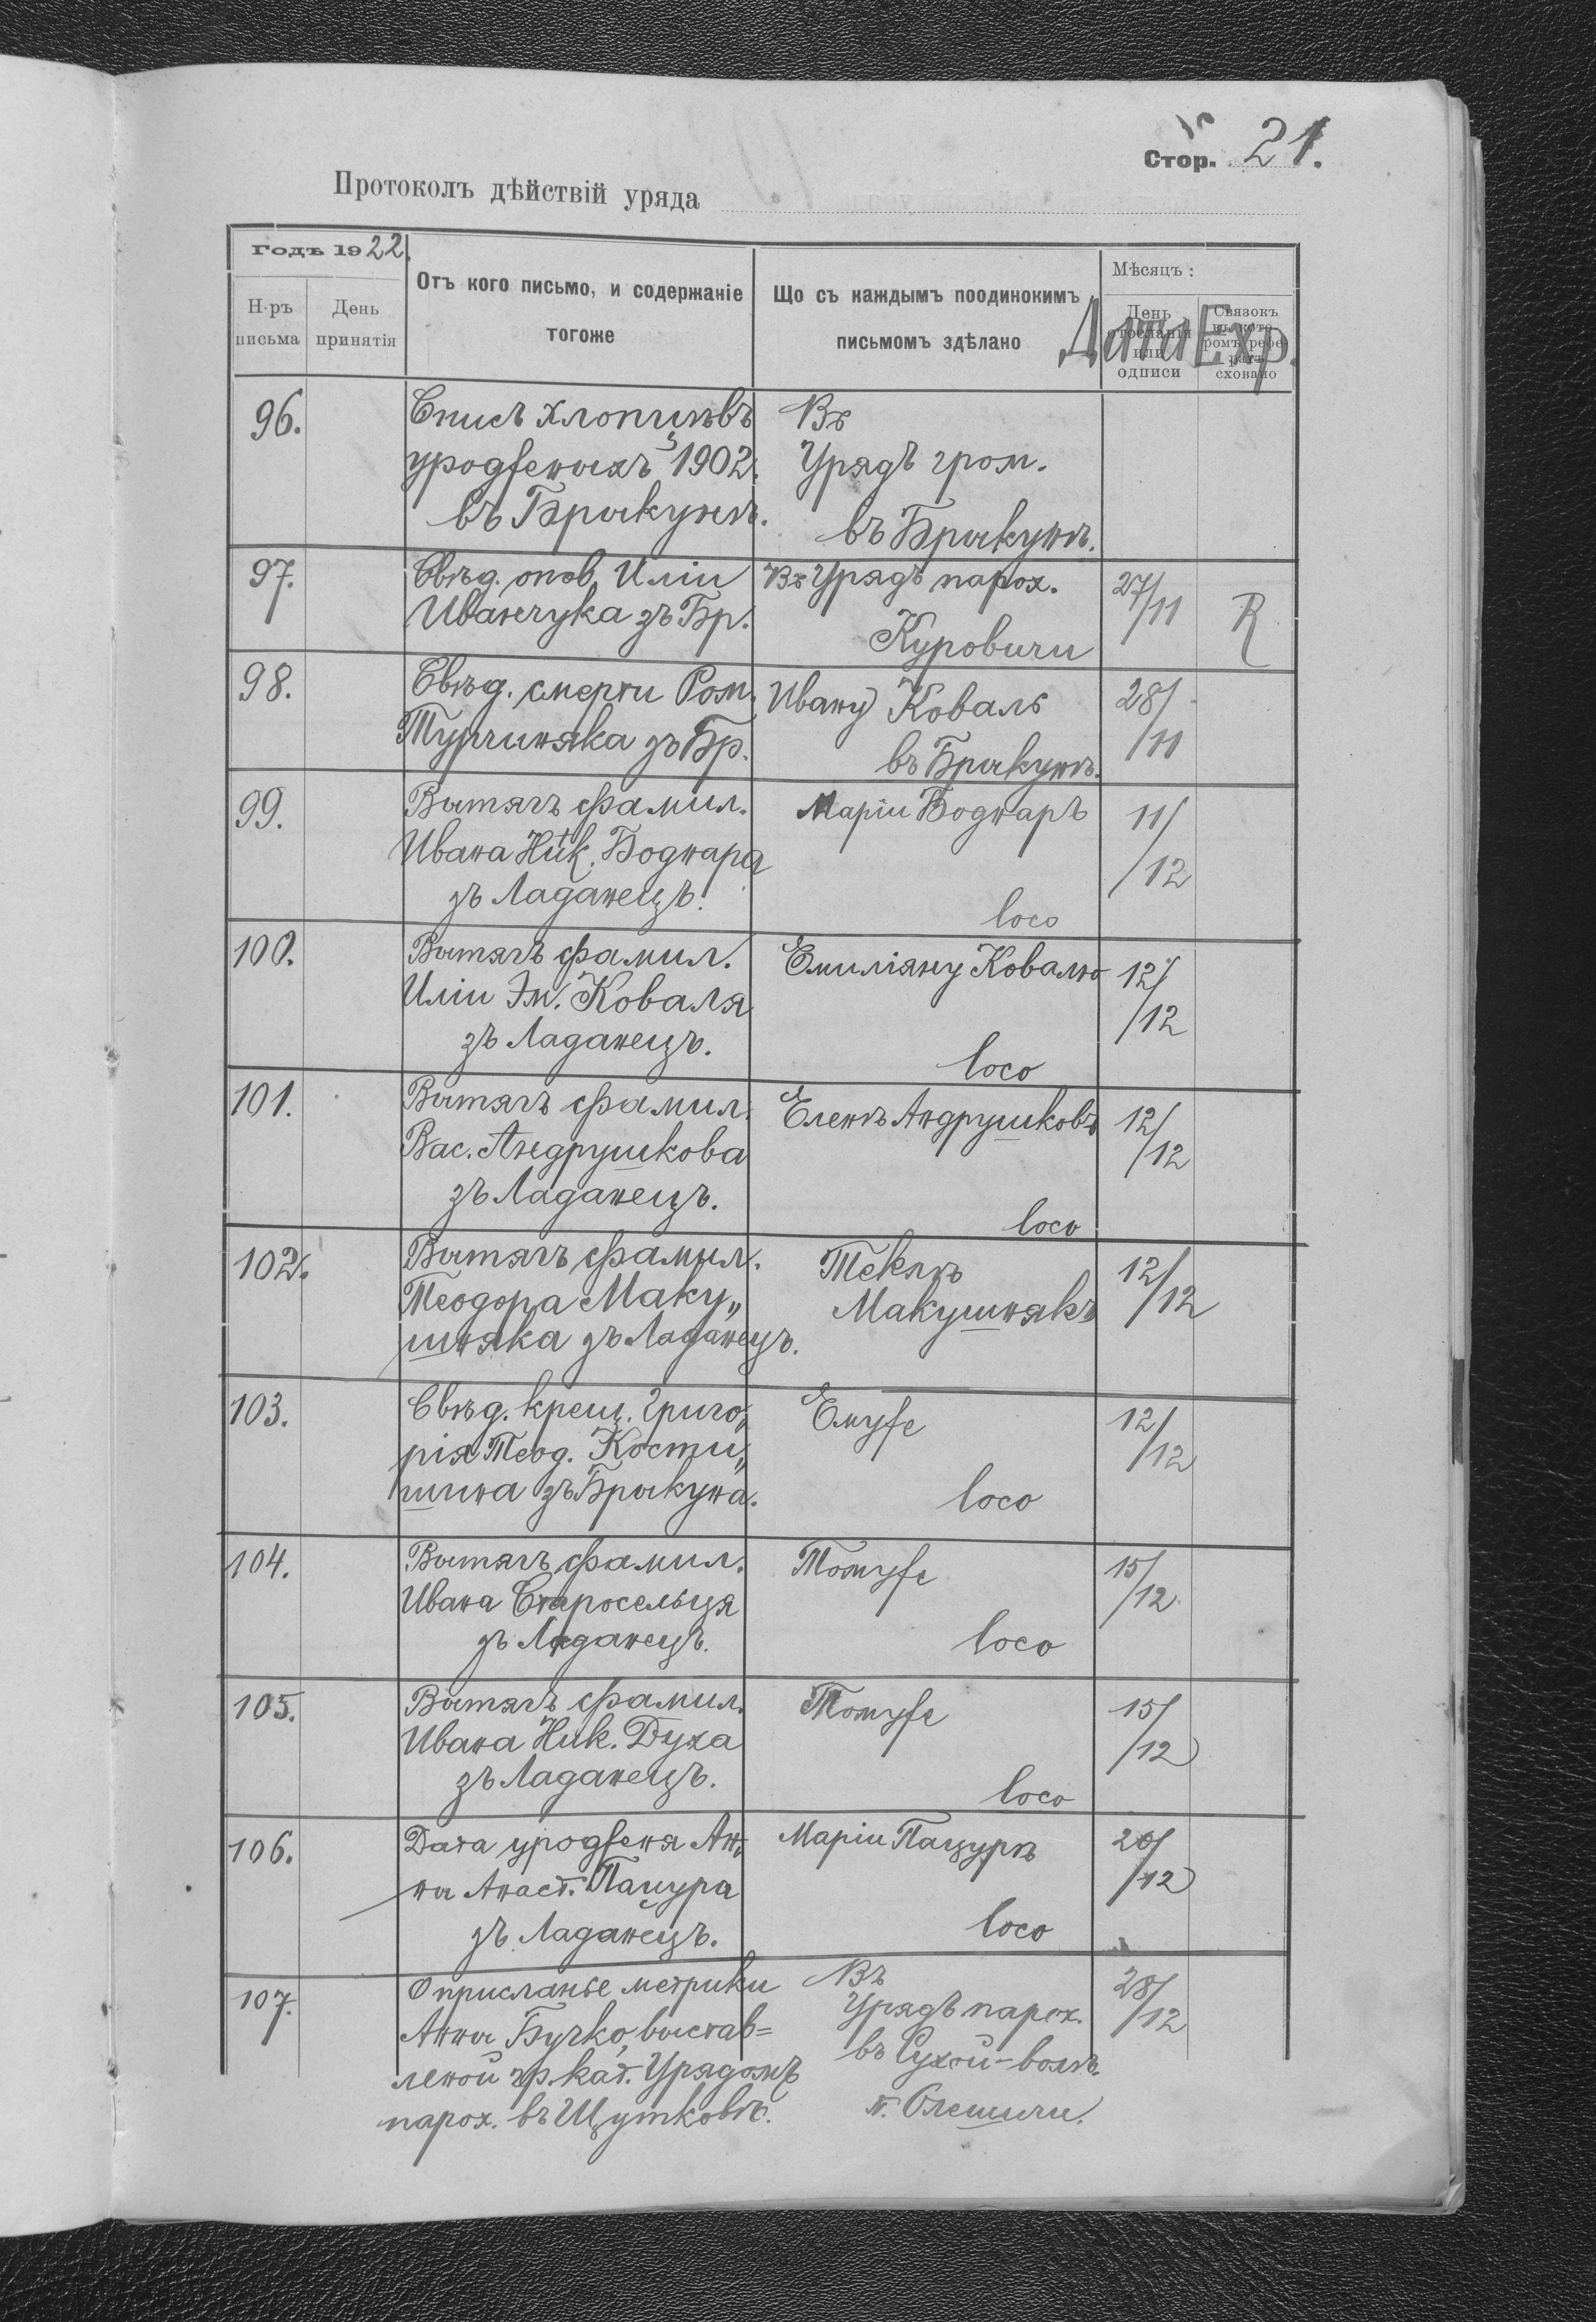 Стор. 21.
Протоколъ дѣйствій уряда
Годъ 1922.
Н-ръ письма
День принятія
Отъ кого письмо, и содержаніе
тогоже
Що съ каждымъ поодинокимъ
письмомъ здѣлано
Мѣсяцъ :
День
отосланія
или
одписи
Связокъ
въ кото-
ромъ рефе-
ратъ
сховано
Дата Exp.
96.
Списъ хлопцѣвъ
уродженыхъ 1902.
въ Брыкунѣ.
Въ
Урядъ гром.
въ Брыкунѣ.
97.
Свѣд. опов. Иліи
Иванчука зъ Бр.
Въ Урядъ парох.
Куровичи
27/11
R
98.
Свѣд. смерти Ром.
Турчиняка зъ Бр.
Ивану Коваль
въ Брыкунѣ.
28/11
99.
Вытягъ фамил.
Ивана Ник. Боднара
зъ Ладанецъ.
Маріи Боднаръ
loco
11/12
100.
Вытягъ фамил.
Иліи Эм. Коваля
зъ Ладанецъ.
Емиліяну Ковалю
loco
12/12
101.
Вытягъ фамил.
Вас. Андрушкова
зъ Ладанецъ.
Еленѣ Андрушковъ
loco
12/12
102.
Вытягъ фамил.
Теодора Маку„
шняка зъ Ладанецъ.
Теклѣ
Макушнякъ
12/12
103.
Свѣд. крещ. Григо„
рія Теод. Кости„
шина зъ Брыкуна.
Емуже
loco
12/12
104.
Вытягъ фамил.
Ивана Старосельця
зъ Ладанецъ.
Томуже
loco
15/12
105.
Вытягъ фамил.
Ивана Ник. Духа
зъ Ладанецъ.
Томуже
loco
15/12
106.
Дата уродженя Ан„
ны Анаст. Пацура
зъ Ладанецъ.
Маріи Пацурѣ
loco
20/12
107.
О присланье метрики
Анны Бучко, выстав=
леной гр. кат. Урядомъ
парох. въ Щутковѣ.
Въ
Урядъ парох.
въ Сухой-волѣ.
п. Олешичи.
28/12